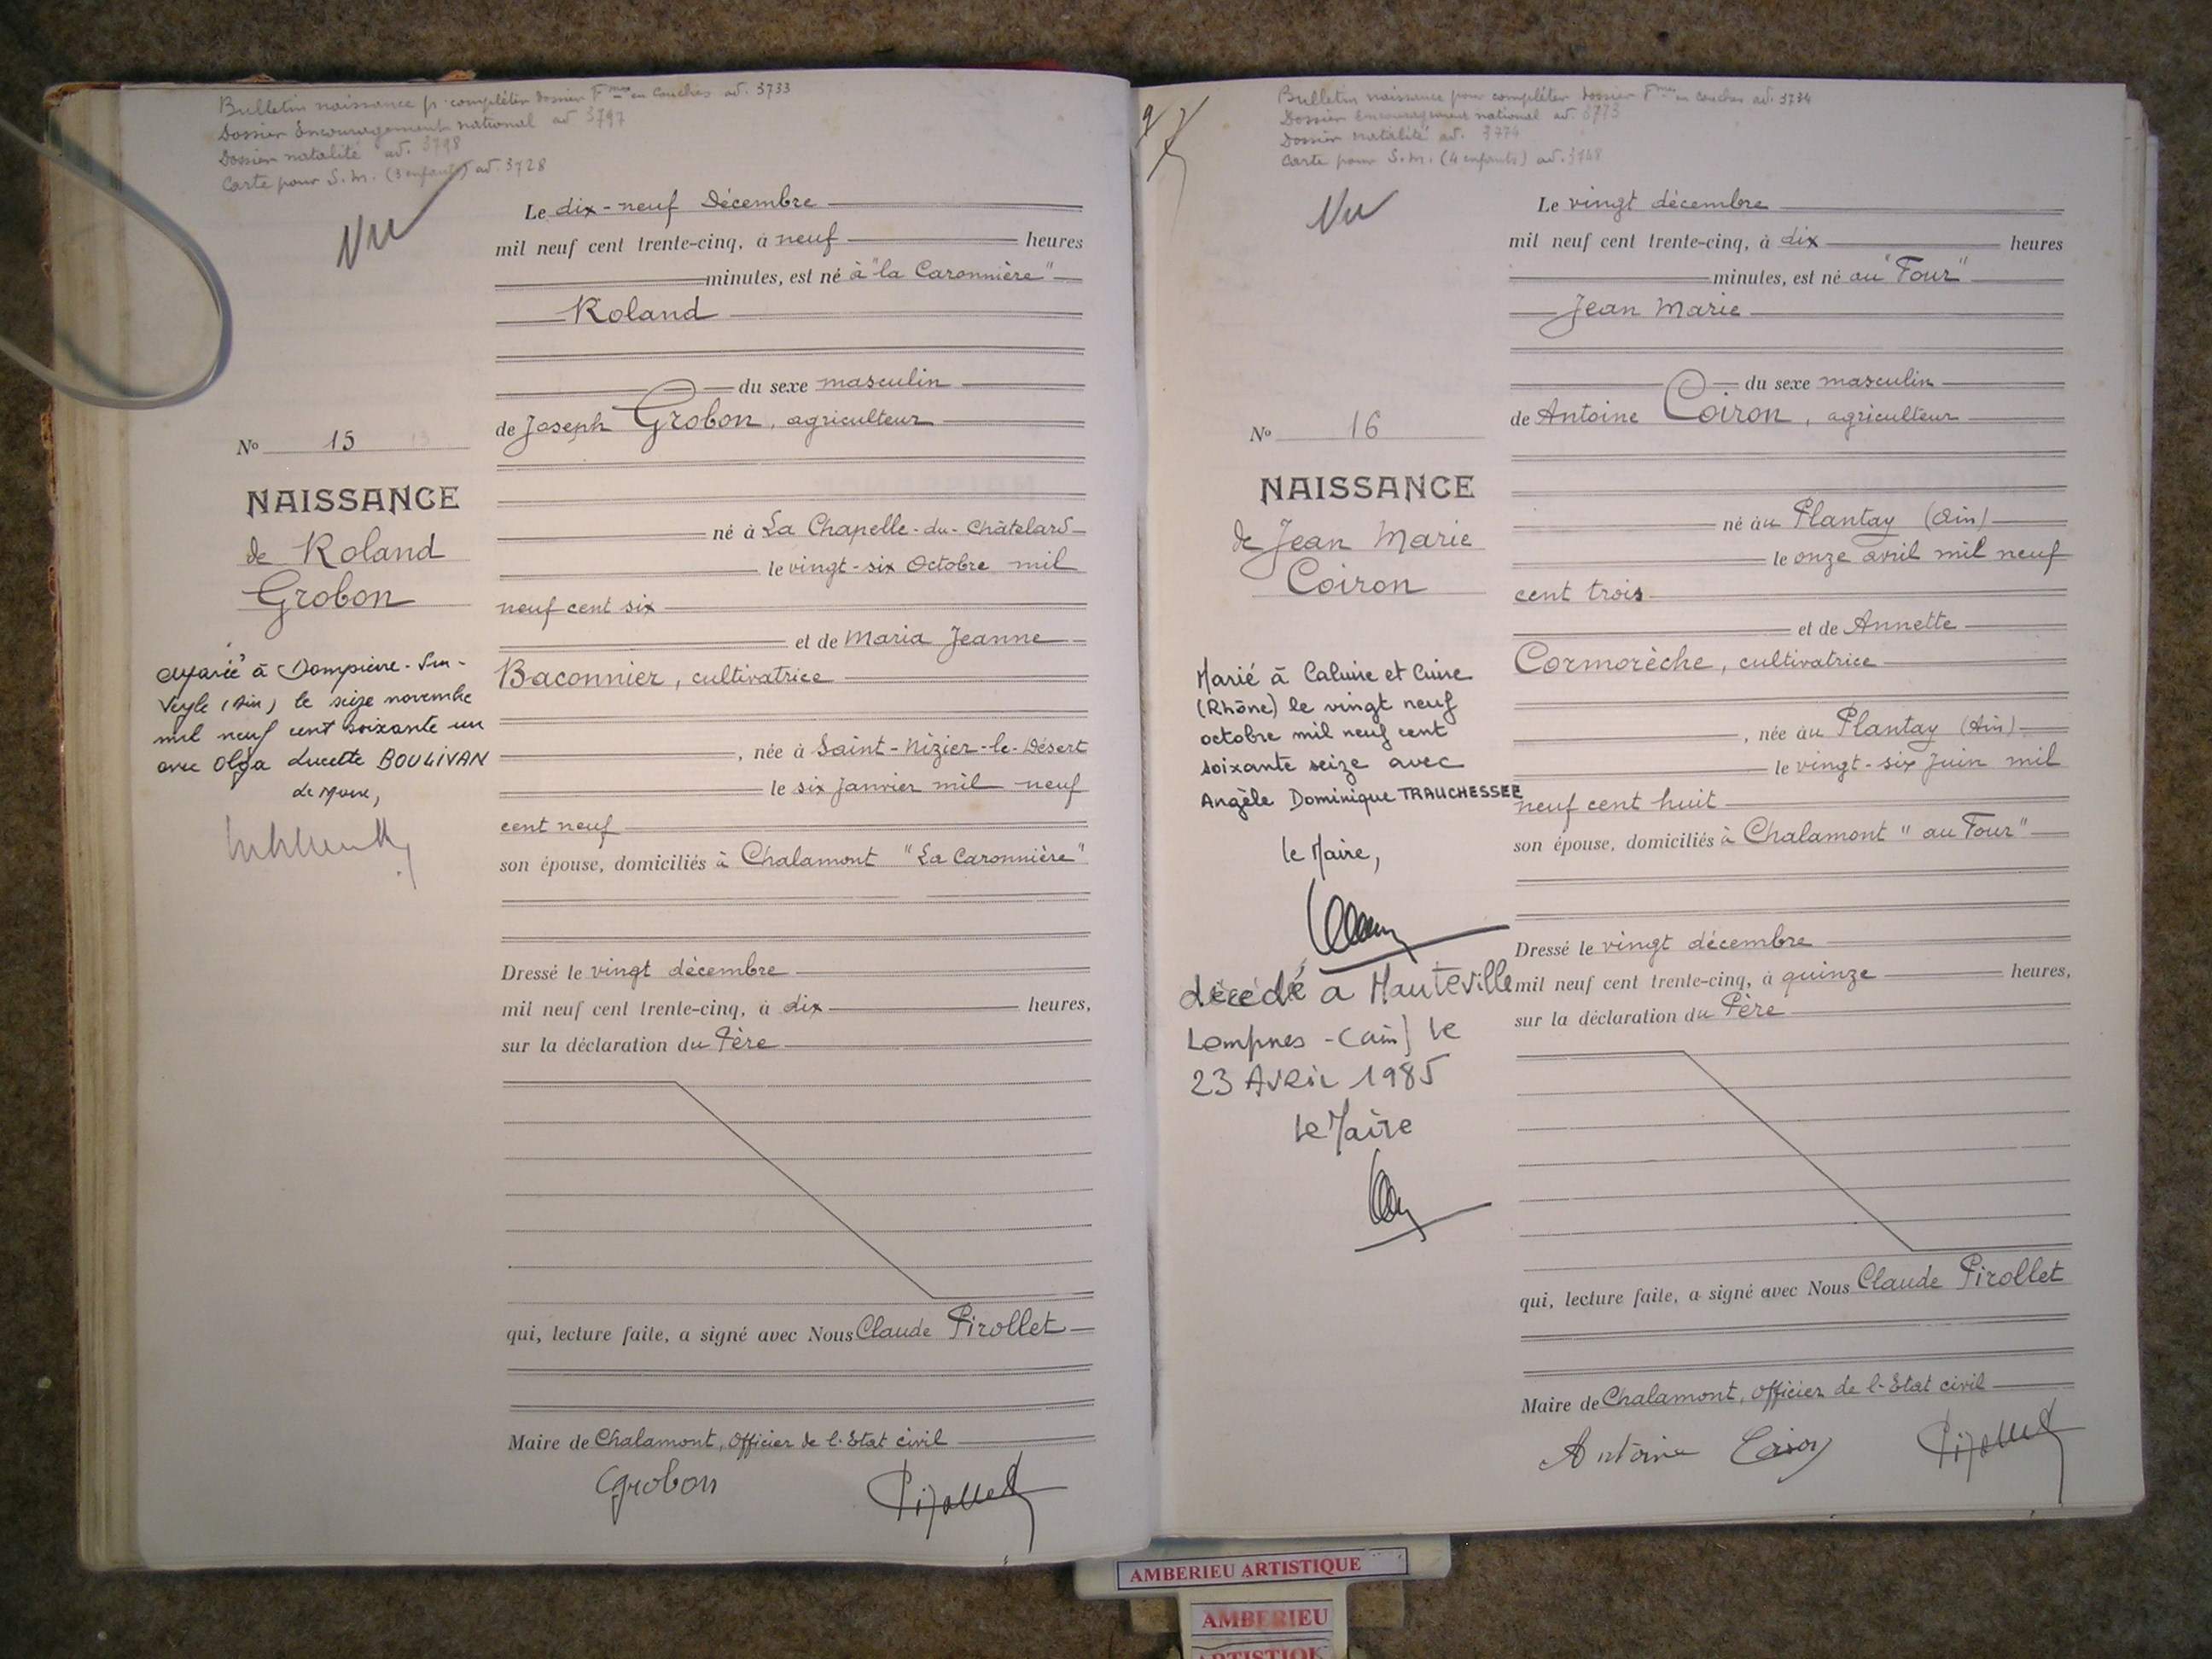 Bulletin naissance pr compléter dossier Fmes en couches ad. 3733
Dossier Encouragement national ad 3797
Dossier natalité ad. 3798
Carte pour S.M. (3 enfants) ad. 3728
Vu
Le dix-neuf Décembre
mil neuf cent trente-cinq, à neuf heures
minutes, est né à "la Caronnière"
Roland
du sexe masculin
de Joseph Grobon, agriculteur
No 15
NAISSANCE
de Roland
Grobon
né à La Chapelle-du-Châtelard
le vingt-six Octobre mil
neuf cent six
et de Maria Jeanne
Baconnier, cultivatrice
, née à Saint-Nizier-le-Désert
le six Janvier mil neuf
cent neuf
son épouse, domiciliés à Chalamont "La Caronnière"
Marié à Dompierre-sur-
Veyle (Ain) le seize novembre
mil neuf cent soixante un
avec Olga Lucette BOULIVAN
Le Maire,
Dressé le vingt décembre
mil neuf cent trente-cinq, à dix heures,
sur la déclaration du Père
qui, lecture faite, a signé avec Nous Claude Pirollet
Maire de Chalamont, Officier de l'Etat civil
Grobon Pirollet
Bulletin naissance pour compléter dossier Fmes en couches ad. 3734
Dossier Encouragement national ad. 3773
Dossier natalité ad. 3774
Carte pour S.M. (4 enfants) ad. 3768
Vu
Le vingt décembre
mil neuf cent trente-cinq, à dix heures
minutes, est né au "Four"
Jean Marie
du sexe masculin
de Antoine Coiron, agriculteur
No 16
NAISSANCE
de Jean Marie
Coiron
né au Plantay (Ain)
le onze avril mil neuf
cent trois
et de Annette
Cormorèche, cultivatrice
, née au Plantay (Ain)
le vingt-six Juin mil
neuf cent huit
son épouse, domiciliés à Chalamont "au Four"
Marié à Caluire et Cuire
(Rhône) le vingt neuf
octobre mil neuf cent
soixante seize avec
Angèle Dominique TRAUCHESSEE
le Maire,
décédé a Hauteville
Lompnes -(ain) le
23 Avril 1985
Le Maire
Dressé le vingt décembre
mil neuf cent trente-cinq, à quinze heures,
sur la déclaration du Père
qui, lecture faite, a signé avec Nous Claude Pirollet
Maire de Chalamont, Officier de l'Etat civil
Antoine Coiron Pirollet
AMBERIEU ARTISTIQUE
AMBERIEU